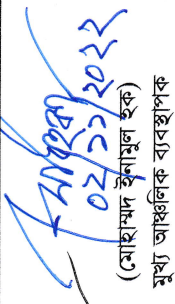 ০২/১১/২০২২
(মোহাম্মদ ইনামুল হক)
মুখ্য আঞ্চলিক ব্যবস্থাপক